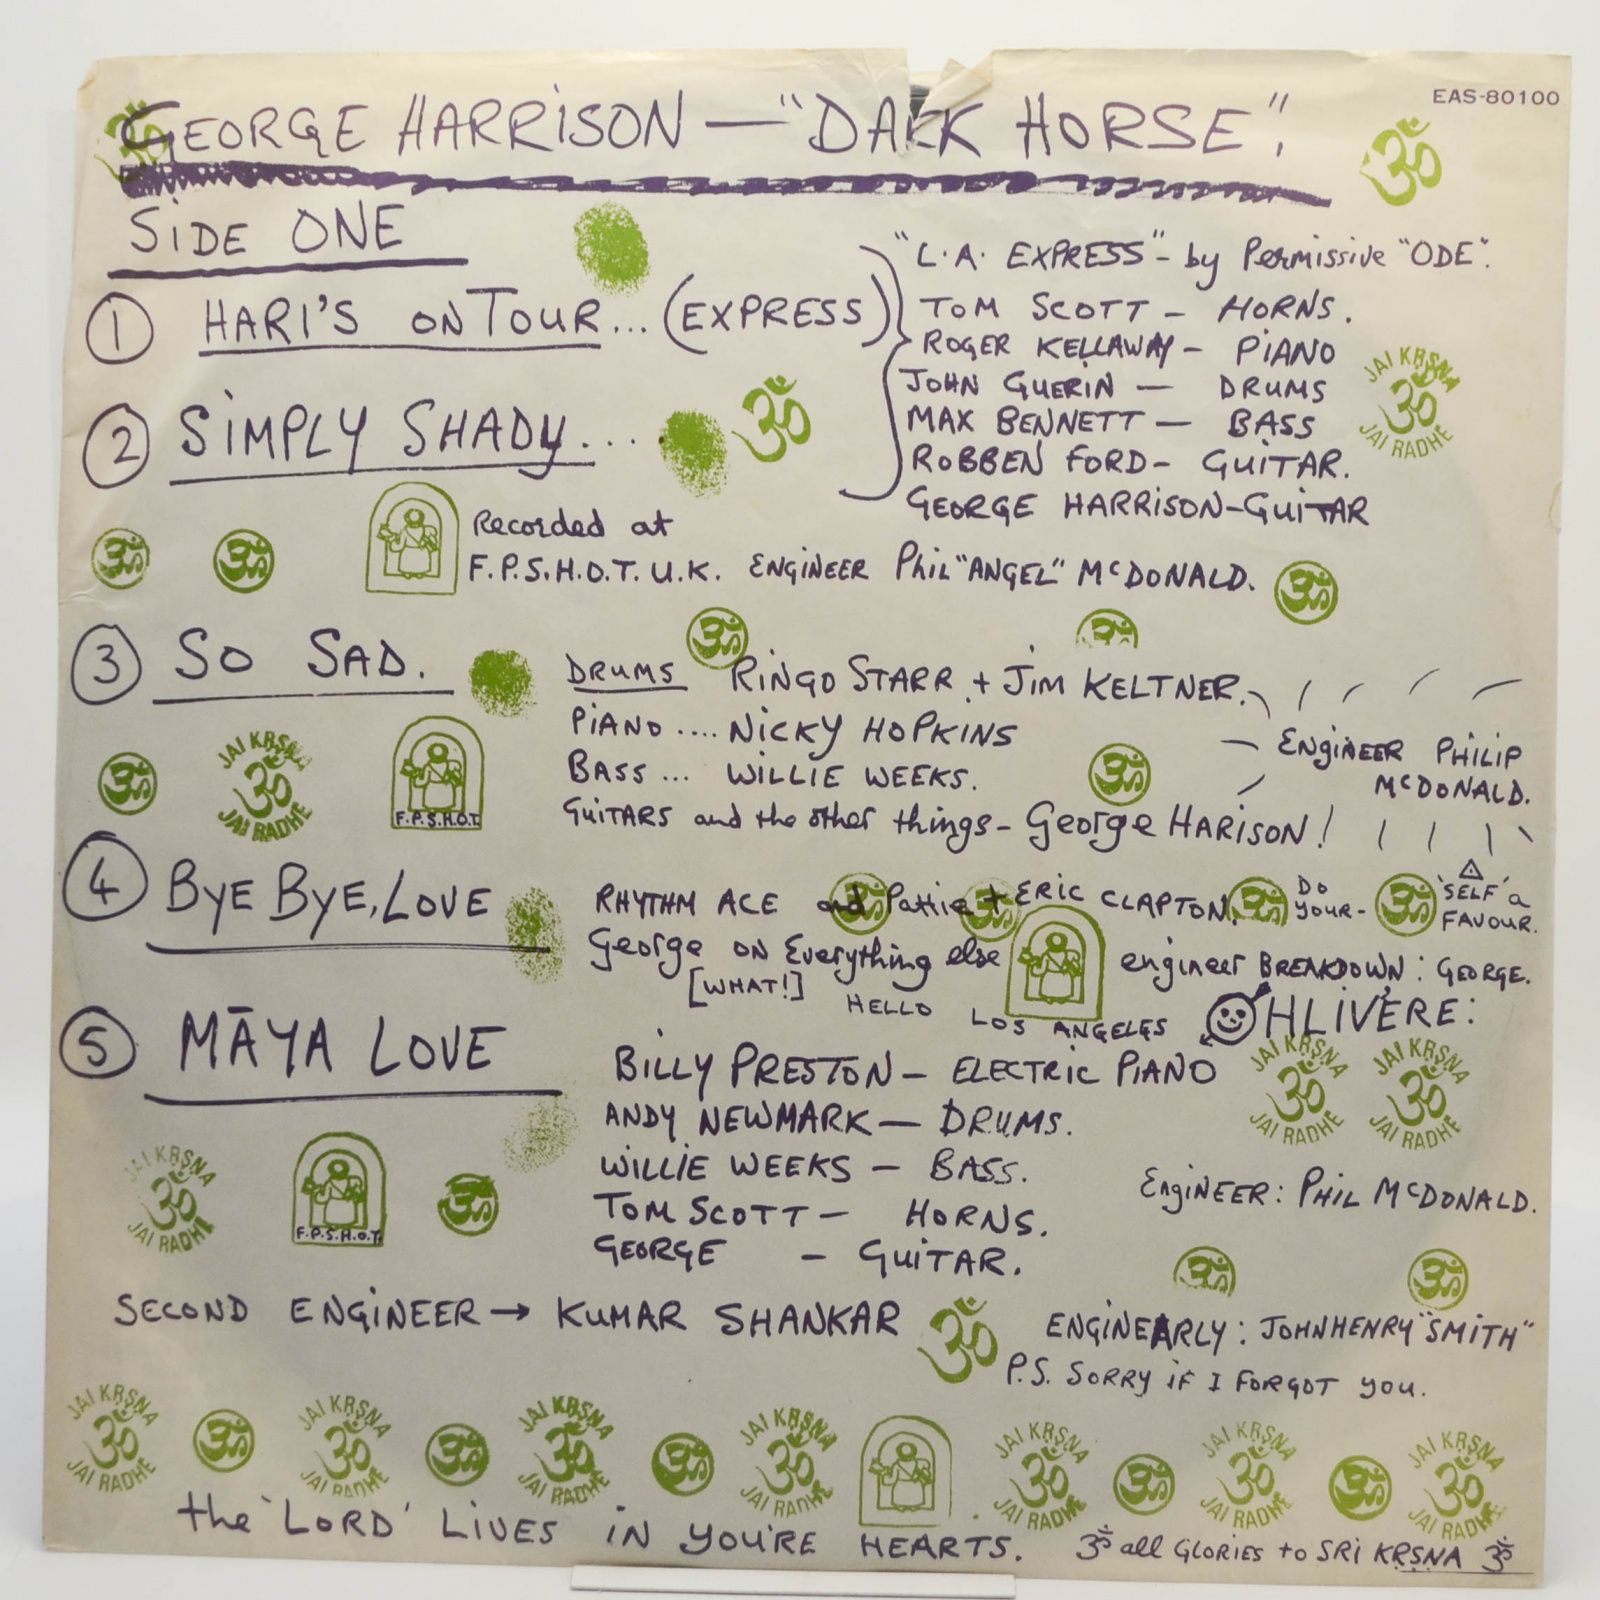 EAS-80100
GEORGE HARRISON — "DARK HORSE".
SIDE ONE
① HARI'S ON TOUR... (EXPRESS)
"L.A. EXPRESS" - by Permissive "ODE".
TOM SCOTT - HORNS.
ROGER KELLAWAY - PIANO
JOHN GUERIN — DRUMS
MAX BENNETT — BASS
ROBBEN FORD - GUITAR.
GEORGE HARRISON - GUITAR
JAI KṚṢNA
ॐ
JAI RADHE
② SIMPLY SHADY...
ॐ
Recorded at
F.P.S.H.O.T. U.K. ENGINEER Phil "ANGEL" McDONALD.
③ SO SAD.
DRUMS RINGO STARR + JIM KELTNER.
PIANO .... NICKY HOPKINS
BASS ... WILLIE WEEKS.
GUITARS and the other things - George HARISON!
ENGINEER PHILIP
McDONALD.
JAI KṚṢNA
ॐ
JAI RADHE
F.P.S.H.O.T.
④ BYE BYE, LOVE
RHYTHM ACE and Pattie + ERIC CLAPTON.
DO
YOUR-
'SELF' a
FAVOUR.
George ON Everything else
[WHAT!]
engineer BREAKDOWN: GEORGE.
HELLO LOS ANGELES
OHLIVERE:
⑤ MĀYA LOVE
BILLY PRESTON - ELECTRIC PIANO
ANDY NEWMARK — DRUMS.
WILLIE WEEKS - BASS.
TOM SCOTT - HORNS.
GEORGE - GUITAR.
JAI KṚṢNA JAI KṚṢNA
ॐ ॐ
JAI RADHE JAI RADHE
ENGINEER: PHIL McDONALD.
JAI KṚṢNA
ॐ
JAI RADHE
F.P.S.H.O.T.
SECOND ENGINEER → KUMAR SHANKAR
ॐ
ENGINEARLY: JOHNHENRY "SMITH"
P.S. SORRY IF I FORGOT YOU.
JAI KṚṢNA JAI KṚṢNA JAI KṚṢNA JAI KṚṢNA JAI KṚṢNA JAI KṚṢNA JAI KṚṢNA
ॐ ॐ ॐ ॐ ॐ ॐ ॐ ॐ ॐ ॐ ॐ ॐ
JAI RADHE JAI RADHE JAI RADHE JAI RADHE JAI RADHE JAI RADHE JAI RADHE
the 'LORD' LIVES IN YOU'RE HEARTS.
ॐ all GLORIES to SRI KṚṢNA ॐ